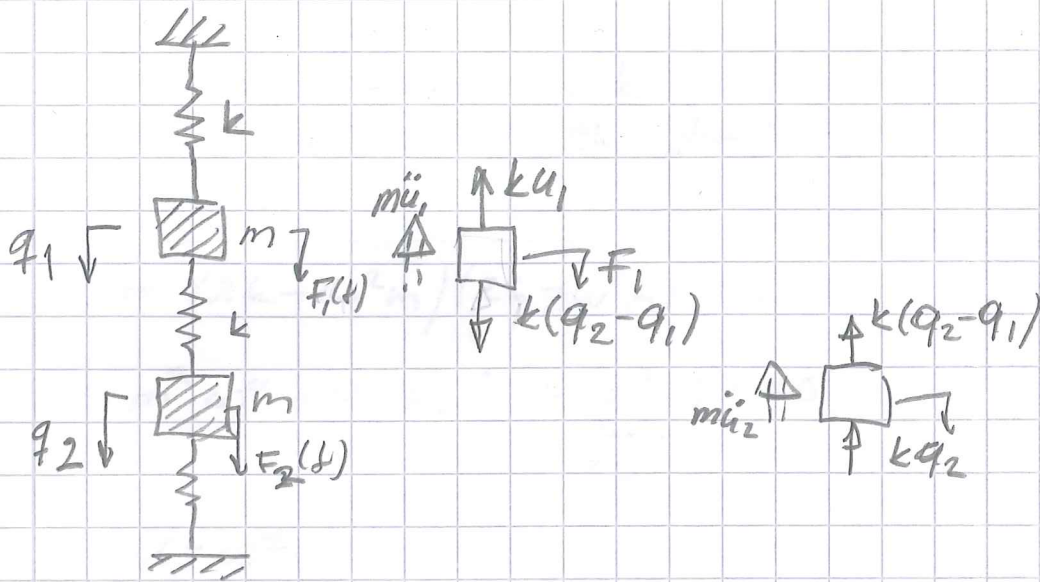 k
q₁
m
F₁(t)
k
q₂
m
F₂(t)
mü₁
ku₁
F₁
k(q₂-q₁)
k(q₂-q₁)
mü₂
kq₂